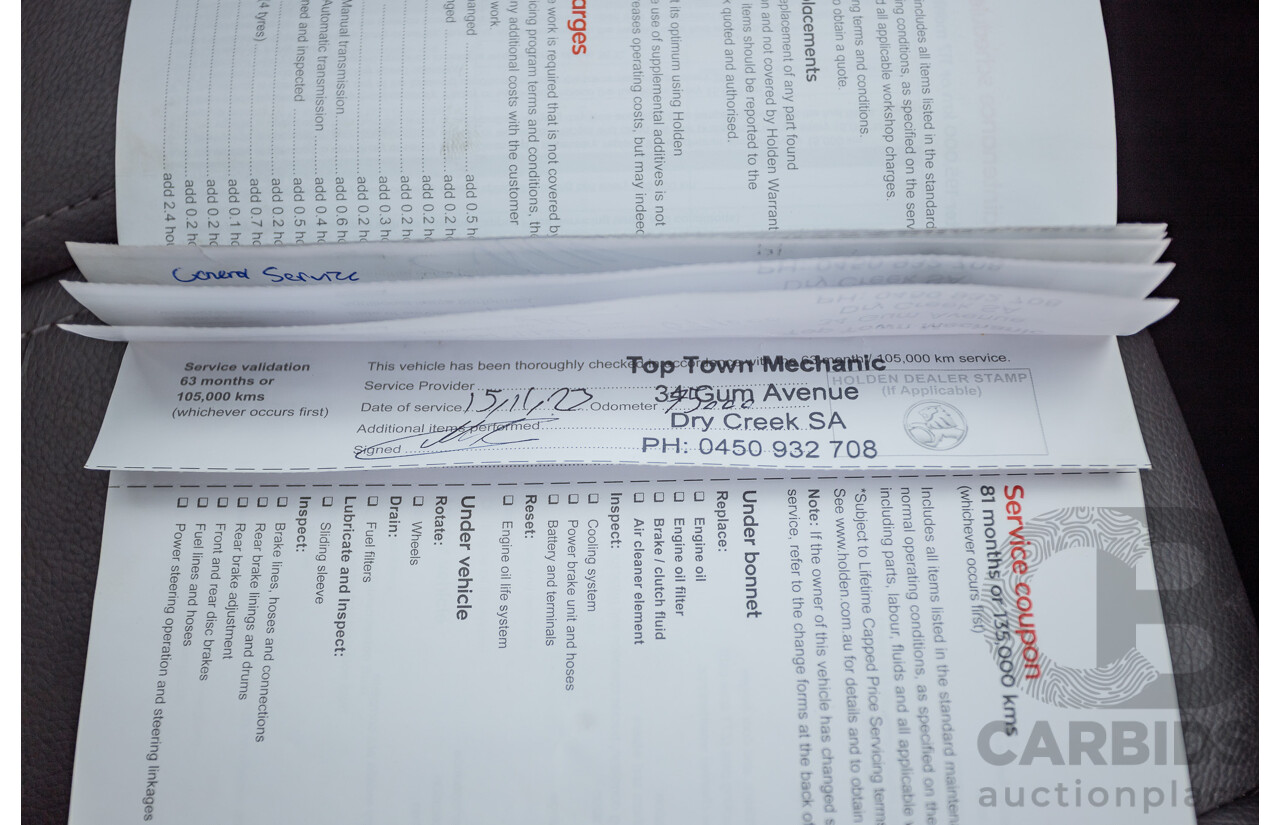 includes all items listed in the standard
ing conditions, as specified on the serv
d all applicable workshop charges.
ng terms and conditions.
o obtain a quote.
placements
eplacement of any part found
n and not covered by Holden Warrant
items should be reported to the
k quoted and authorised.
t its optimum using Holden
e use of supplemental additives is not
reases operating costs, but may indeed
arges
e work is required that is not covered by
icing program terms and conditions, th
ny additional costs with the customer
work.
anged add 0.5 h
nged add 0.2 h
add 0.2 h
add 0.2 h
add 0.3 h
add 0.2 h
Manual transmission add 0.6 h
Automatic transmission add 0.4 h
ned and inspected add 0.5 h
add 0.2 h
(4 tyres) add 0.7 h
add 0.1 h
add 0.2 h
add 0.2 h
add 2.4 hou
General Service
Service validation
63 months or
105,000 kms
(whichever occurs first)
This vehicle has been thoroughly checked in accordance with the 63 month / 105,000 km service.
Service Provider
Date of service 15/11/23 Odometer
Additional items performed
Signed
Top Town Mechanic
34 Gum Avenue
Dry Creek SA
PH: 0450 932 708
HOLDEN DEALER STAMP
(If Applicable)
Service coupon
81 months or 135,000 kms
(whichever occurs first)
Includes all items listed in the standard mainten
normal operating conditions, as specified on the
including parts, labour, fluids and all applicable
*Subject to Lifetime Capped Price Servicing terms
See www.holden.com.au for details and to obtain
Note: If the owner of this vehicle has changed
service, refer to the change forms at the back of
Under bonnet
Replace:
Engine oil
Engine oil filter
Brake / clutch fluid
Air cleaner element
Inspect:
Cooling system
Power brake unit and hoses
Battery and terminals
Reset:
Engine oil life system
Under vehicle
Rotate:
Wheels
Drain:
Fuel filters
Lubricate and Inspect:
Sliding sleeve
Inspect:
Brake lines, hoses and connections
Rear brake linings and drums
Rear brake adjustment
Front and rear disc brakes
Fuel lines and hoses
Power steering operation and steering linkages
CARBIDS
auctionpla